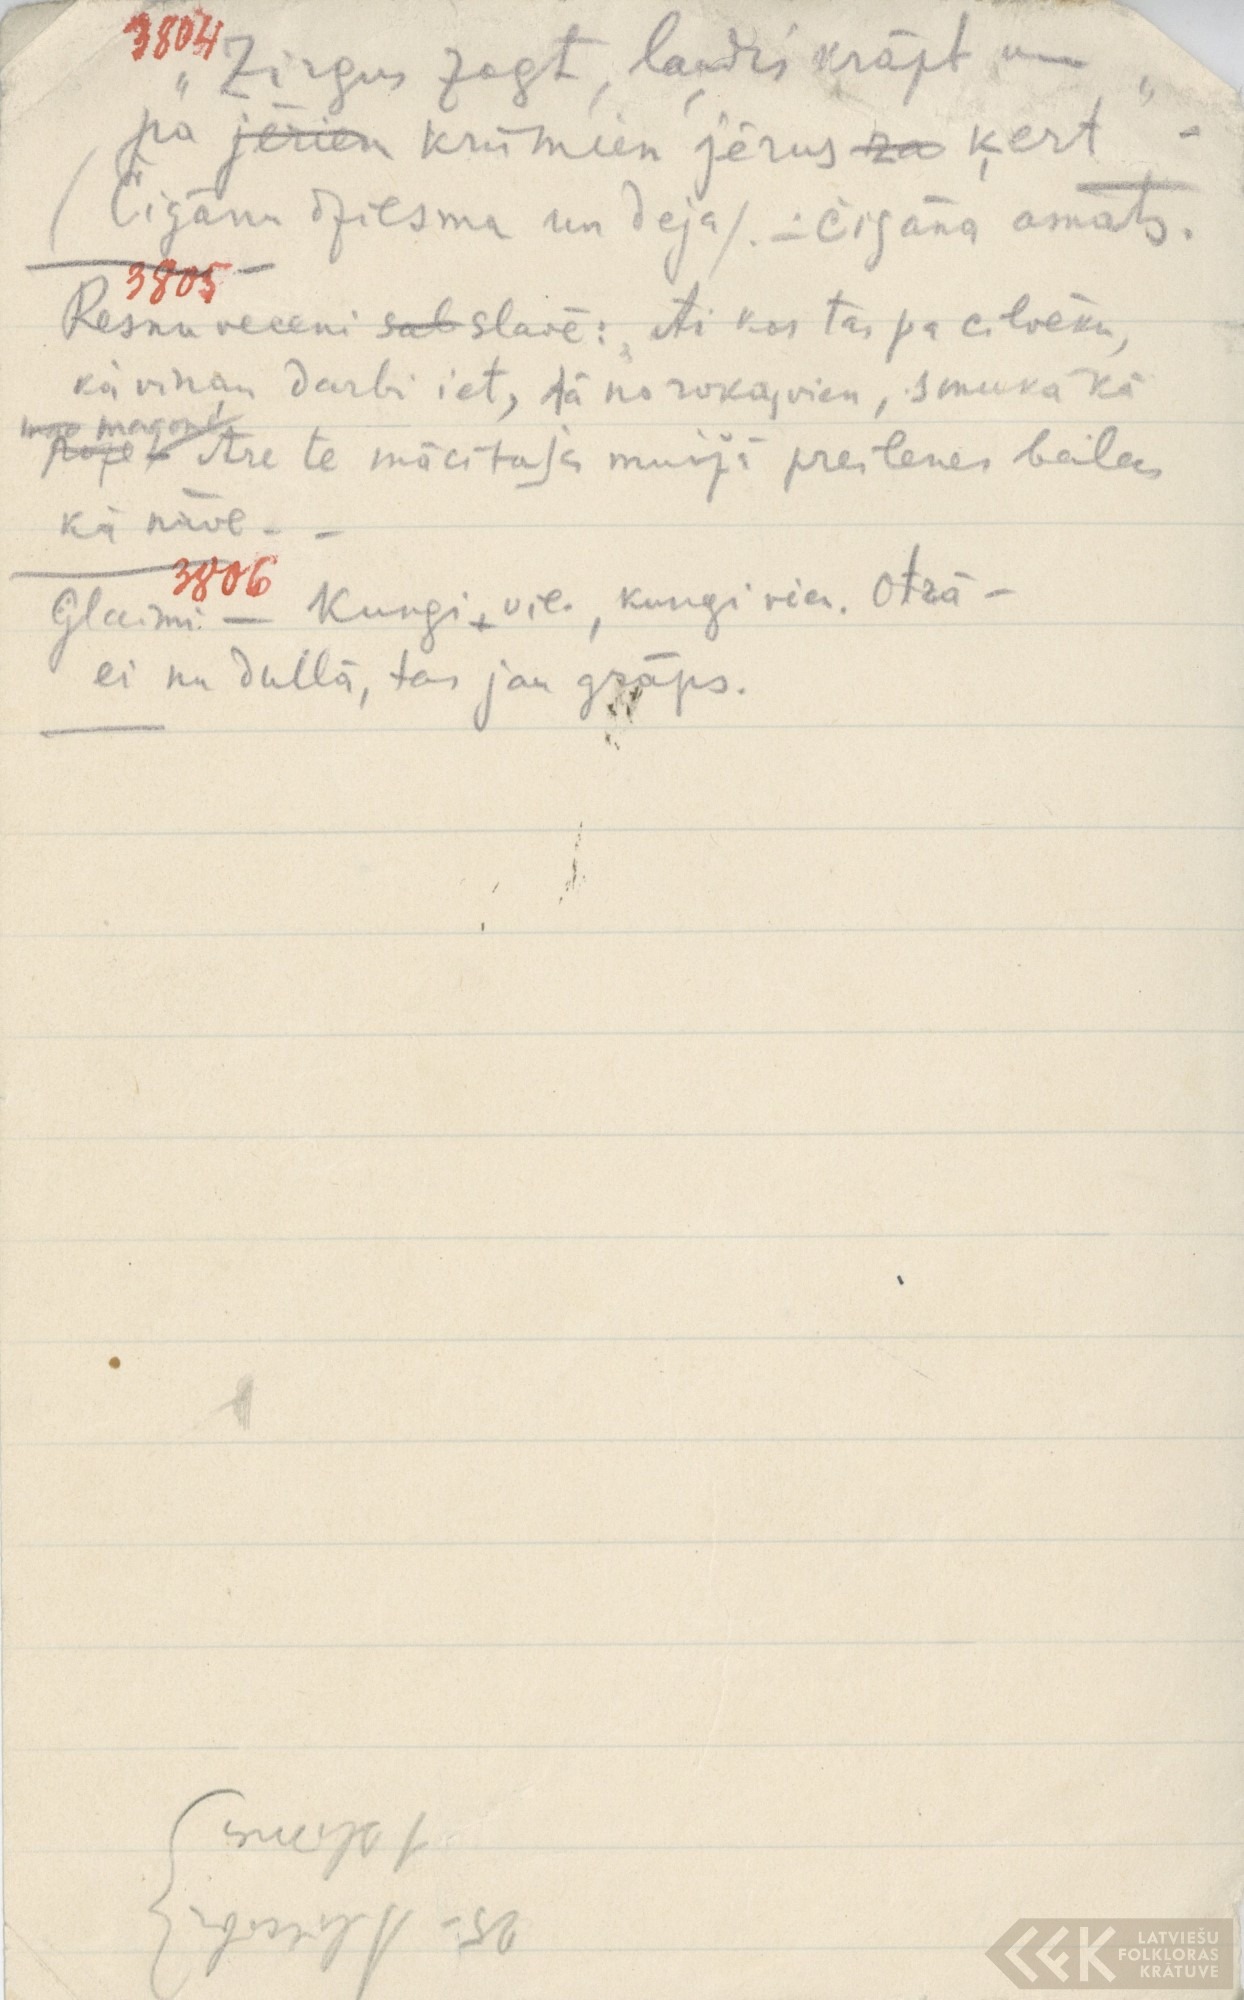 3804
"Zirgus zagt, ļaudis krāpt un
pa jērien krūmien jērus za ķert" -
(Čigānu dziesma un deja). - čigāna amats.
3805
Resnu veceni sab slavē: Ai kas tas pa cilvēku,
kā viņai darbi iet, tā no rokas vien, smuka kā
mag magone
roze - Are te mācītāja muižā preilenes bālas
kā nāve - -
3806
Glaimi - Kungi vie., kungi vien. Otrā -
ei nu dullā, tas jau grāps.
25-
LATVIEŠU
FOLKLORAS
KRĀTUVE